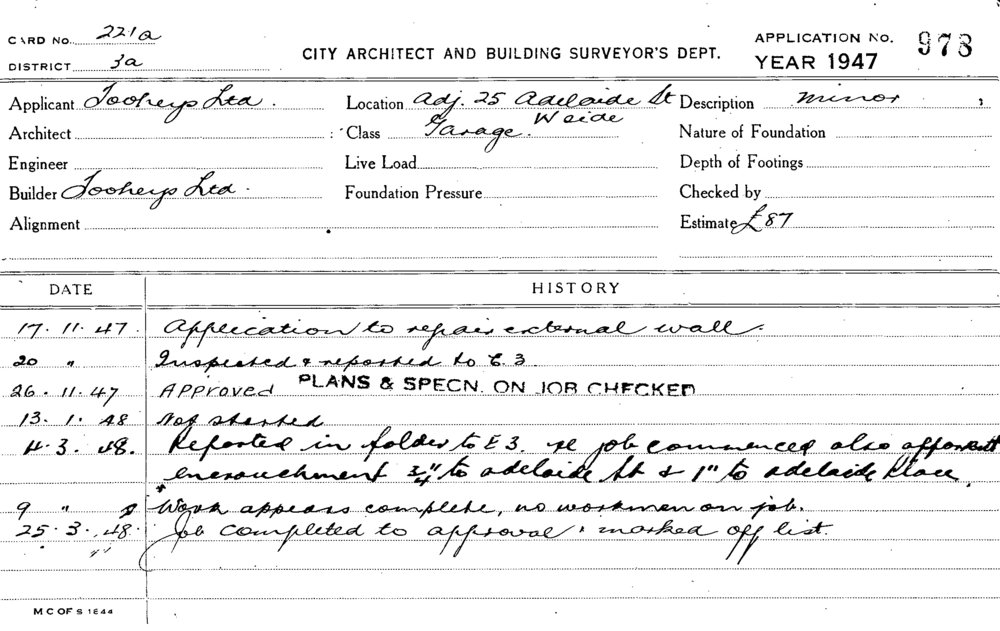 CARD No. 221a
DISTRICT 3a
CITY ARCHITECT AND BUILDING SURVEYOR'S DEPT.
APPLICATION NO. 978
YEAR 1947
Applicant Tooheys Ltd. Location Adj. 25 Adelaide St Description minor
Architect Class Garage. Nature of Foundation
Engineer Live Load Depth of Footings
Builder Tooheys Ltd. Foundation Pressure Checked by
Alignment Estimate £87
DATE HISTORY
17.11.47. Application to repair external wall.
20 " Inspected & reported to E.3.
26.11.47 Approved PLANS & SPECN. ON JOB CHECKED
13.1.48 Not started
4.3.48. Reported in folder to E3. re job commenced also apparent
encrouchment 3/4" to adelaide St & 1" to adelaide Place.
9 " Work appears complete, no workmen on job.
25.3.48. Job completed to approval & marked off list.
M C OF S 1844